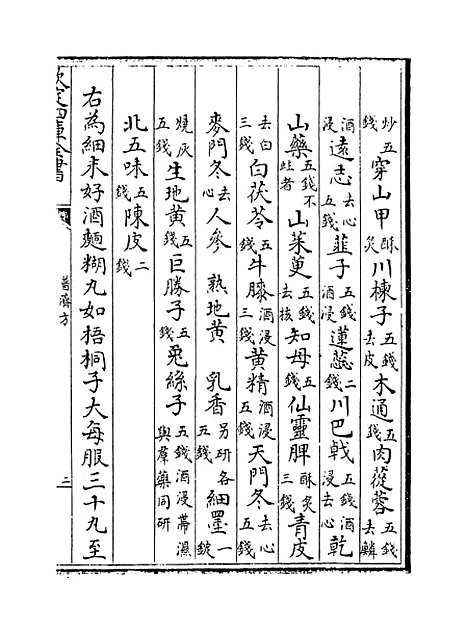 炒五錢穿山甲酥炙川楝子五錢去皮木通五錢肉蓯蓉五錢去鱗
酒浸遠志去心五錢韮子五錢酒浸蓮蕊二錢川巴戟五錢酒浸去心乾
山藥五錢不蛀者山茱萸五錢去核知母五錢仙靈脾酥炙三錢青皮
去白三錢白茯苓五錢牛膝酒浸三錢黄精酒浸五錢天門冬去心五錢
麥門冬去心人參 熟地黄 乳香另研各五錢細墨一錠
燒灰五錢生地黄五錢巨勝子五錢兎絲子五錢酒浸帶濕與羣藥同研
北五味五錢陳皮二錢
右為細末好酒麵糊丸如梧桐子大每服三十丸至
欽定四庫全書
普濟方
二